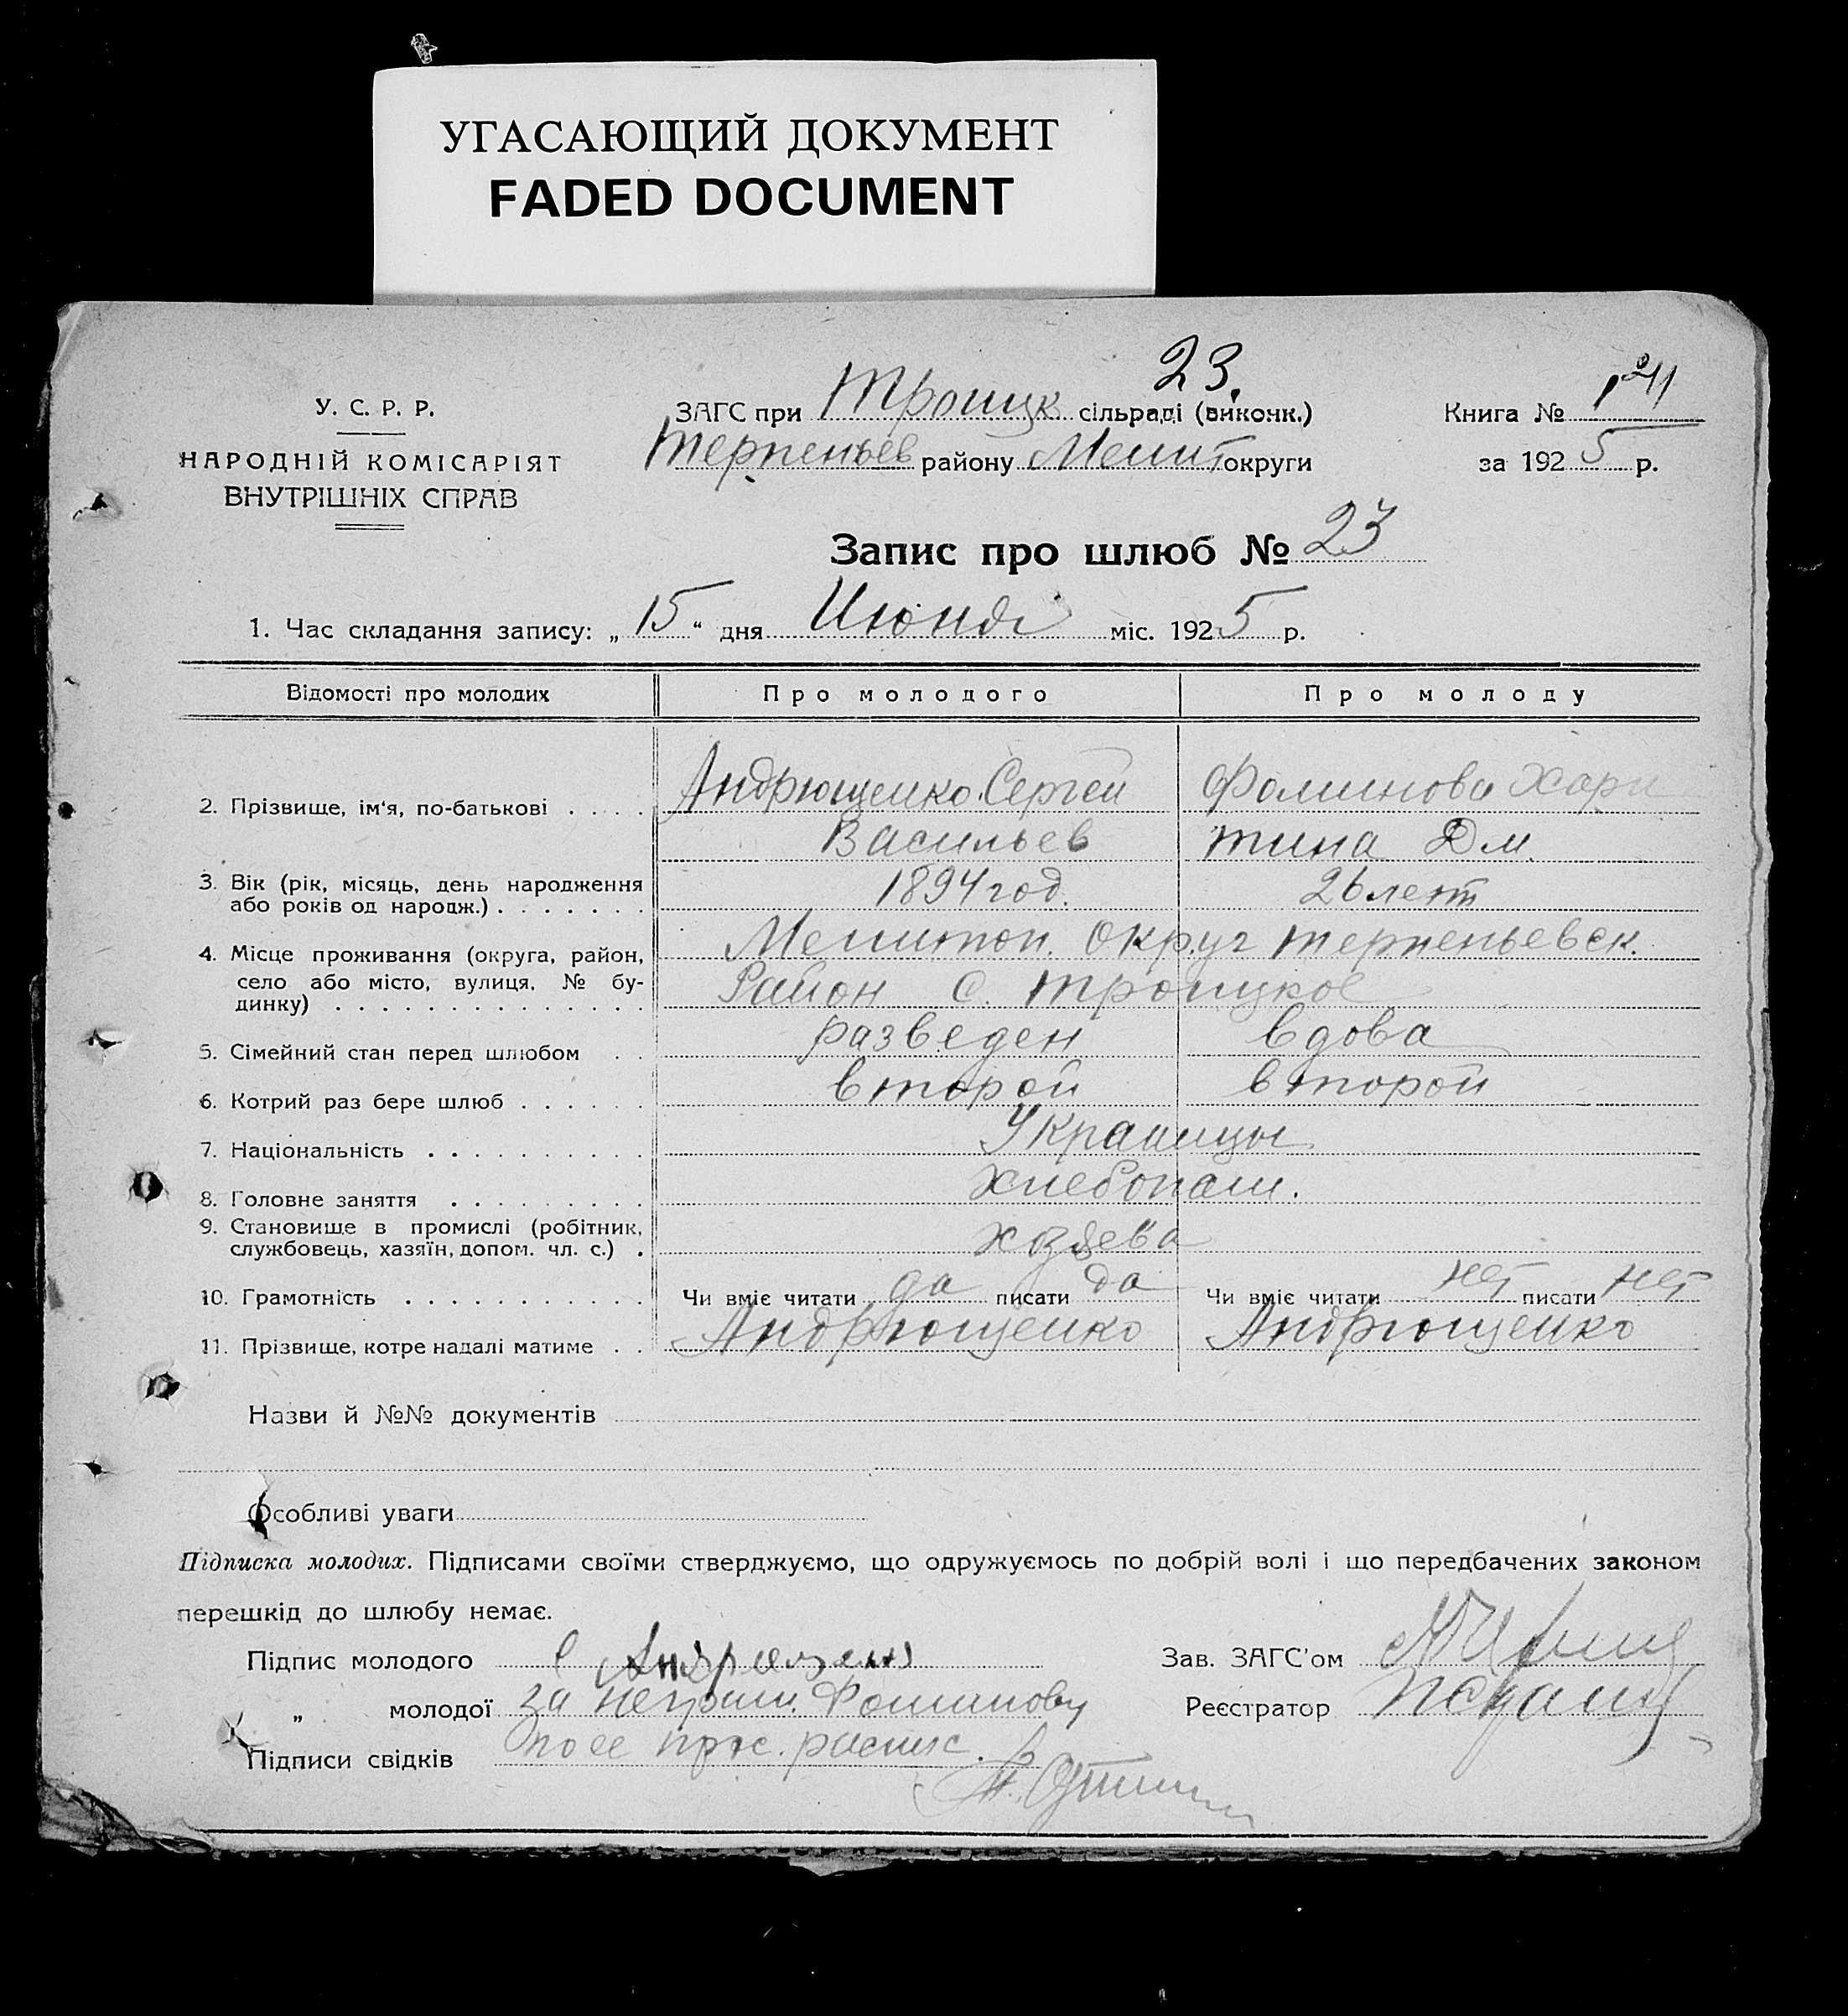 УГАСАЮЩИЙ ДОКУМЕНТ
FADED DOCUMENT
23.
У. С. Р. Р.
НАРОДНІЙ КОМІСАРІЯТ
ВНУТРІШНІХ СПРАВ
ЗАГС при Троицк сільраді (виконк.)
Терпеньев району Мелит округи
Книга №
за 1925 р.
Запис про шлюб № 23
1. Час складання запису: „15“ дня Июня міс. 1925 р.
Відомості про молодих Про молодого Про молоду
2. Прізвище, ім'я, по-батькові . . . . Андрющенко Сергей Фоминова Хари
Васильев тина Дм.
3. Вік (рік, місяць, день народження
або років од народж.) . . . . . . . 1894 год. 26 лет
4. Місце проживання (округа, район, Мелитоп. округ Терпеньевск.
село або місто, вулиця, № бу-
динку) . . . . . . . . . . . . . . Район с. Троицкое
5. Сімейний стан перед шлюбом . . разведен вдова
6. Котрий раз бере шлюб . . . . . . второй второй
7. Національність . . . . . . . . . . Украинцы
8. Головне заняття . . . . . . . . . Хлебопаш.
9. Становище в промислі (робітник,
службовець, хазяїн, допом. чл. с.) . хозяева
10. Грамотність . . . . . . . . . . . Чи вміє читати да писати да Чи вміє читати нет писати нет
11. Прізвище, котре надалі матиме . . Андрющенко Андрющенко
Назви й №№ документів
Особливі уваги
Підписка молодих. Підписами своїми стверджуємо, що одружуємось по добрій волі і що передбачених законом
перешкід до шлюбу немає.
Підпис молодого
Зав. ЗАГС'ом
„ молодої за неграм. Фоминову
Реєстратор
Підписи свідків по ее прос. распис.